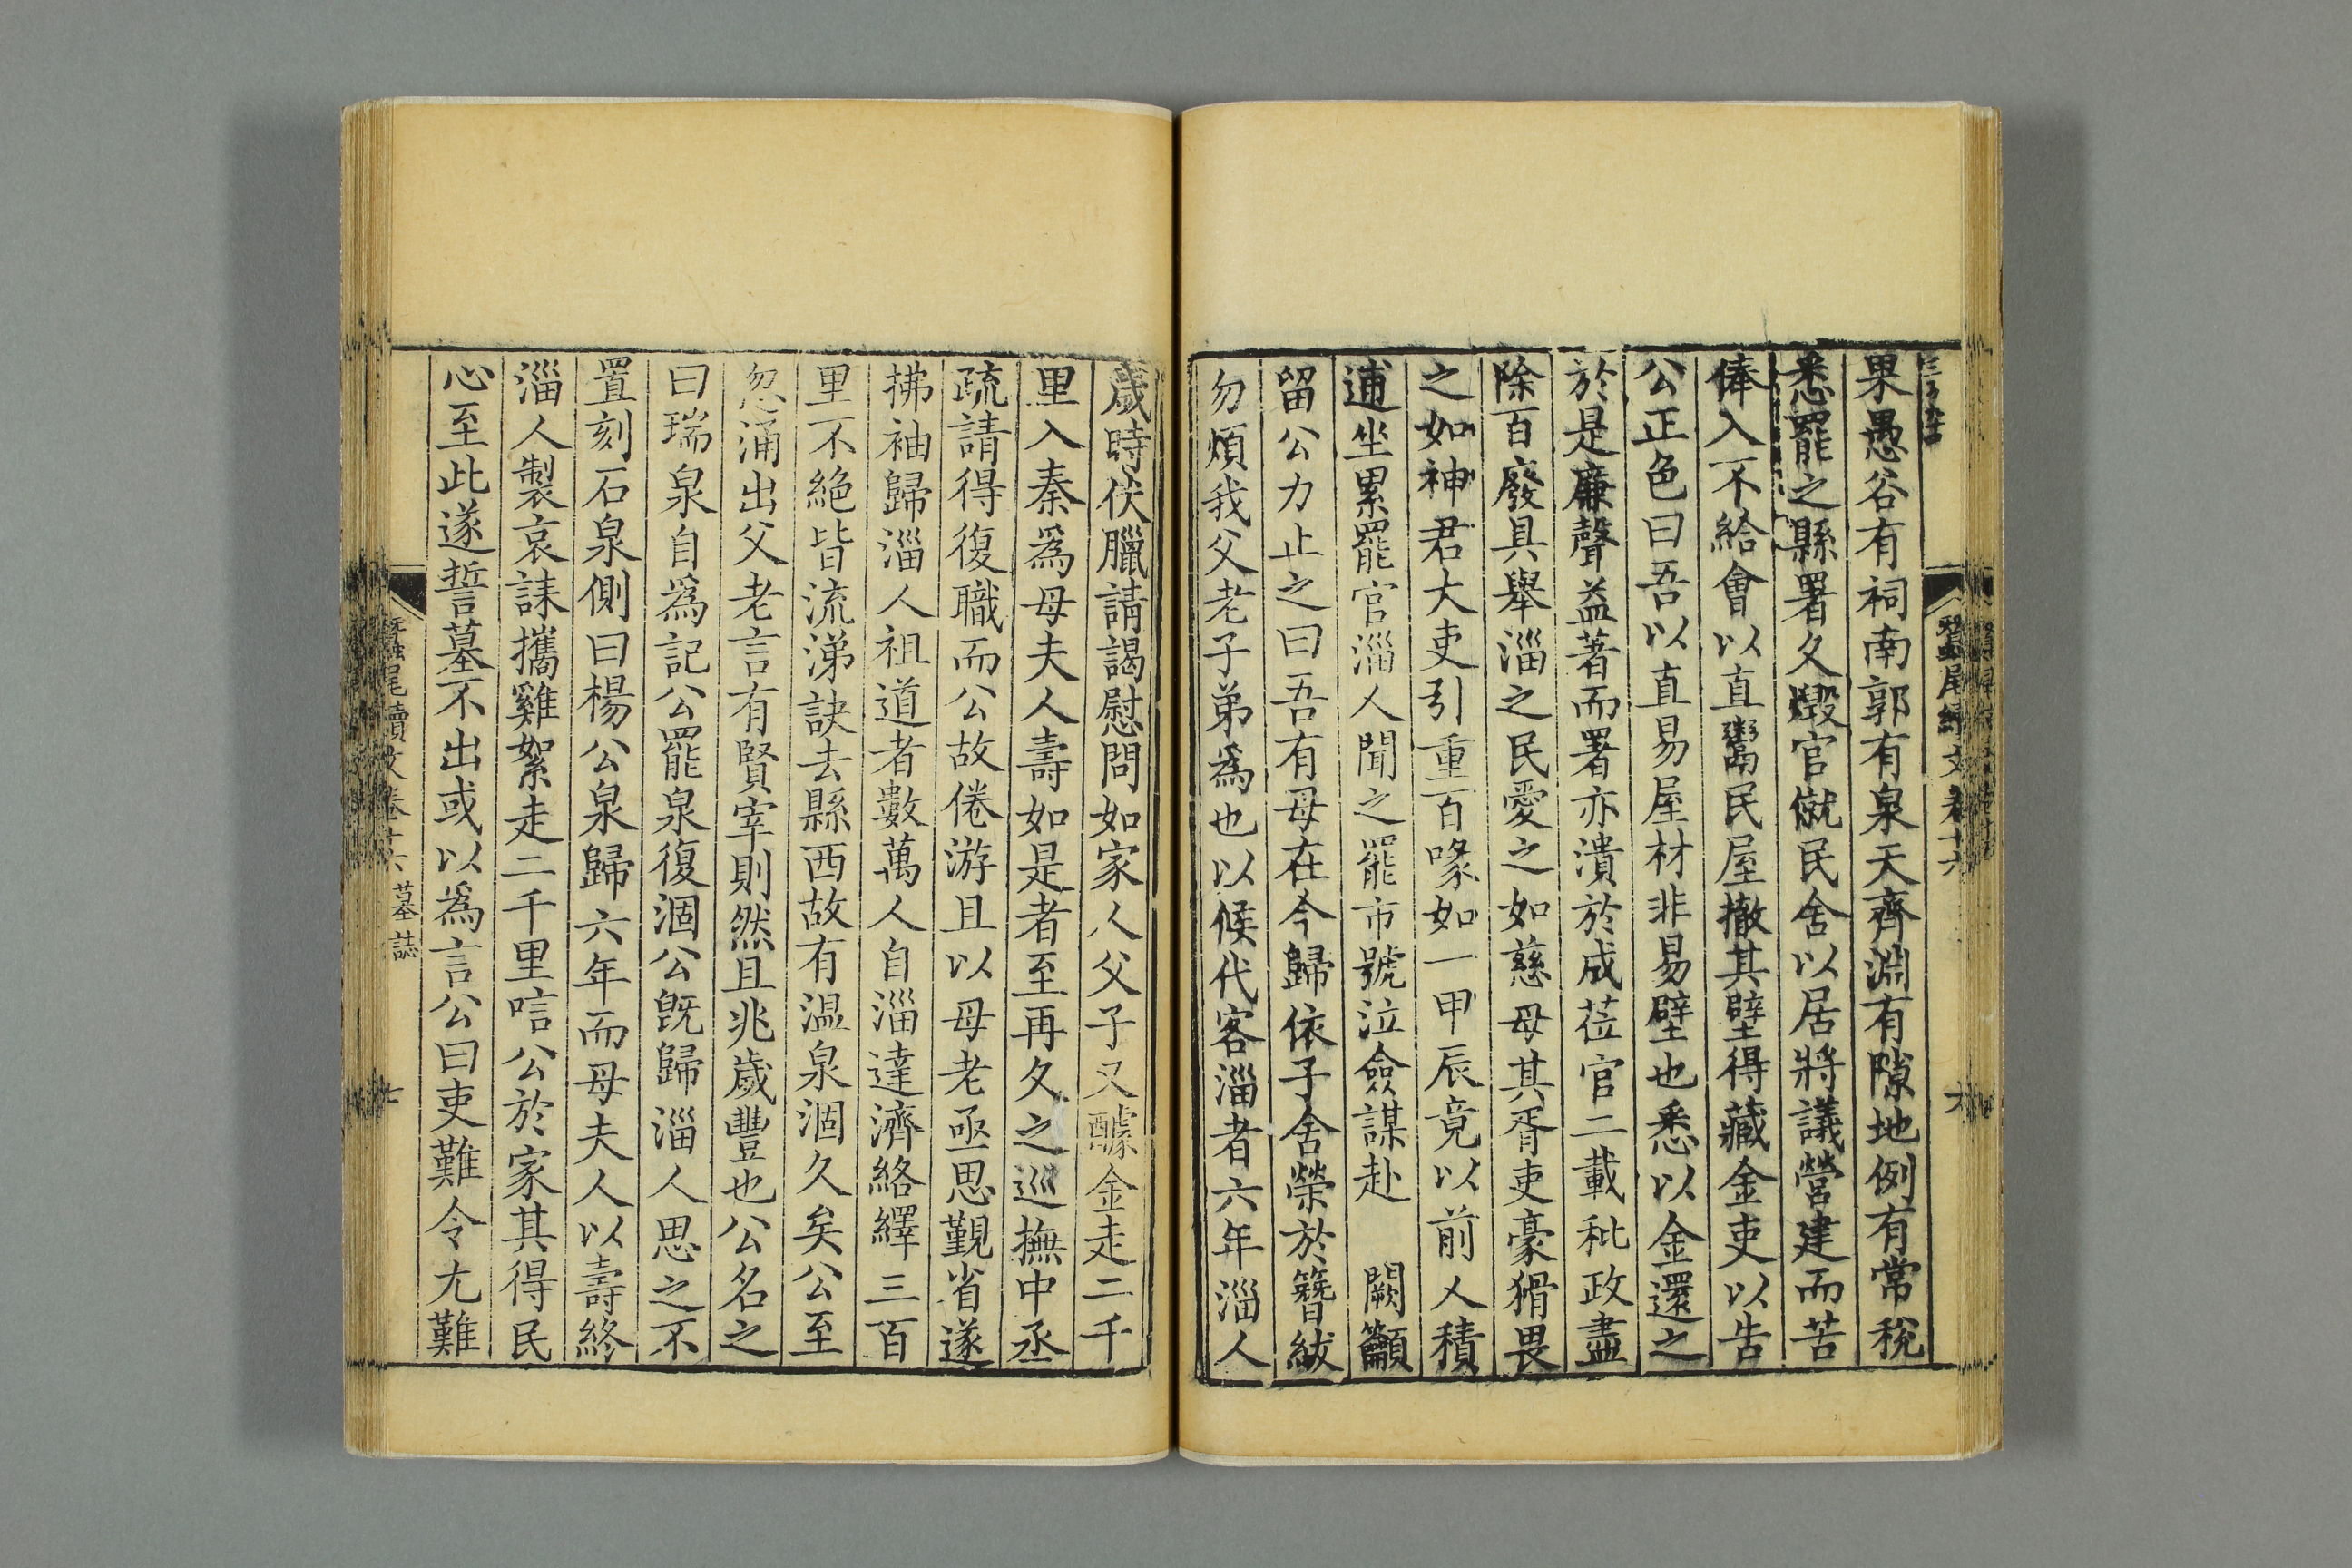 果愚谷有祠南郭有泉天齊淵有隙地例有常稅
悉罷之縣署久燬官僦民舍以居將議營建而苦
俸入不給會以直鬻民屋撤其壁得藏金吏以告
公正色曰吾以直易屋材非易壁也悉以金還之
於是廉聲益著而署亦潰於成莅官二載秕政盡
除百廢具舉淄之民愛之如慈母其胥吏豪猾畏
之如神君大吏引重百喙如一甲辰竟以前人積
逋坐累罷官淄人聞之罷市號泣僉謀赴 闕籲
留公力止之曰吾有母在今歸依子舍榮於簪紱
勿煩我父老子弟爲也以候代客淄者六年淄人
歲時伏臘請謁慰問如家人父子又醵金走二千
里入秦爲母夫人壽如是者至再久之巡撫中丞
疏請得復職而公故倦游且以母老亟思覲省遂
拂袖歸淄人祖道者數萬人自淄達濟絡繹三百
里不絕皆流涕訣去縣西故有溫泉涸久矣公至
忽涌出父老言有賢宰則然且兆歲豐也公名之
曰瑞泉自爲記公罷泉復涸公旣歸淄人思之不
置刻石泉側曰楊公泉歸六年而母夫人以壽終
淄人製哀誄攜雞絮走二千里唁公於家其得民
心至此遂誓墓不出或以爲言公曰吏難令尤難
蠶尾續文卷十六 墓誌 七